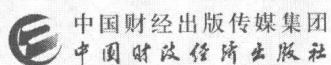 中国财经出版传媒集团
中国财政经济出版社